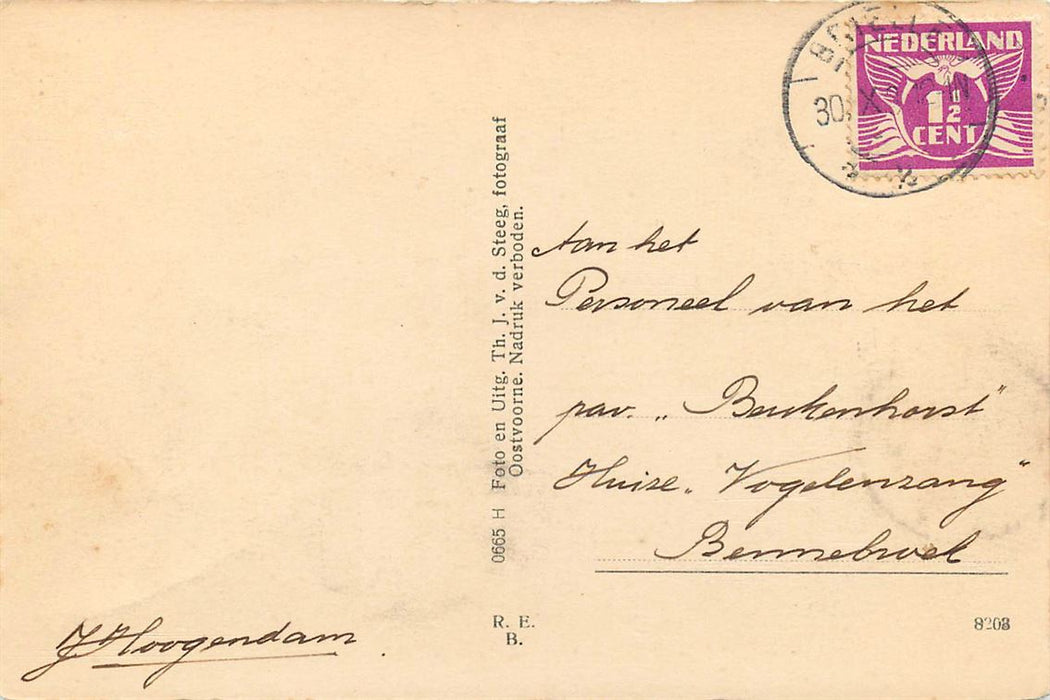 NEDERLAND
1 1/2
CENT
BRIELLE
30
Aan het
Personeel van het
pav. „Beukenhorst"
Huize „Vogelenzang"
Bennebroek
0665 H Foto en Uitg. Th. J. v. d. Steeg, fotograaf
Oostvoorne. Nadruk verboden.
J Hoogendam.
R. E.
B.
8203